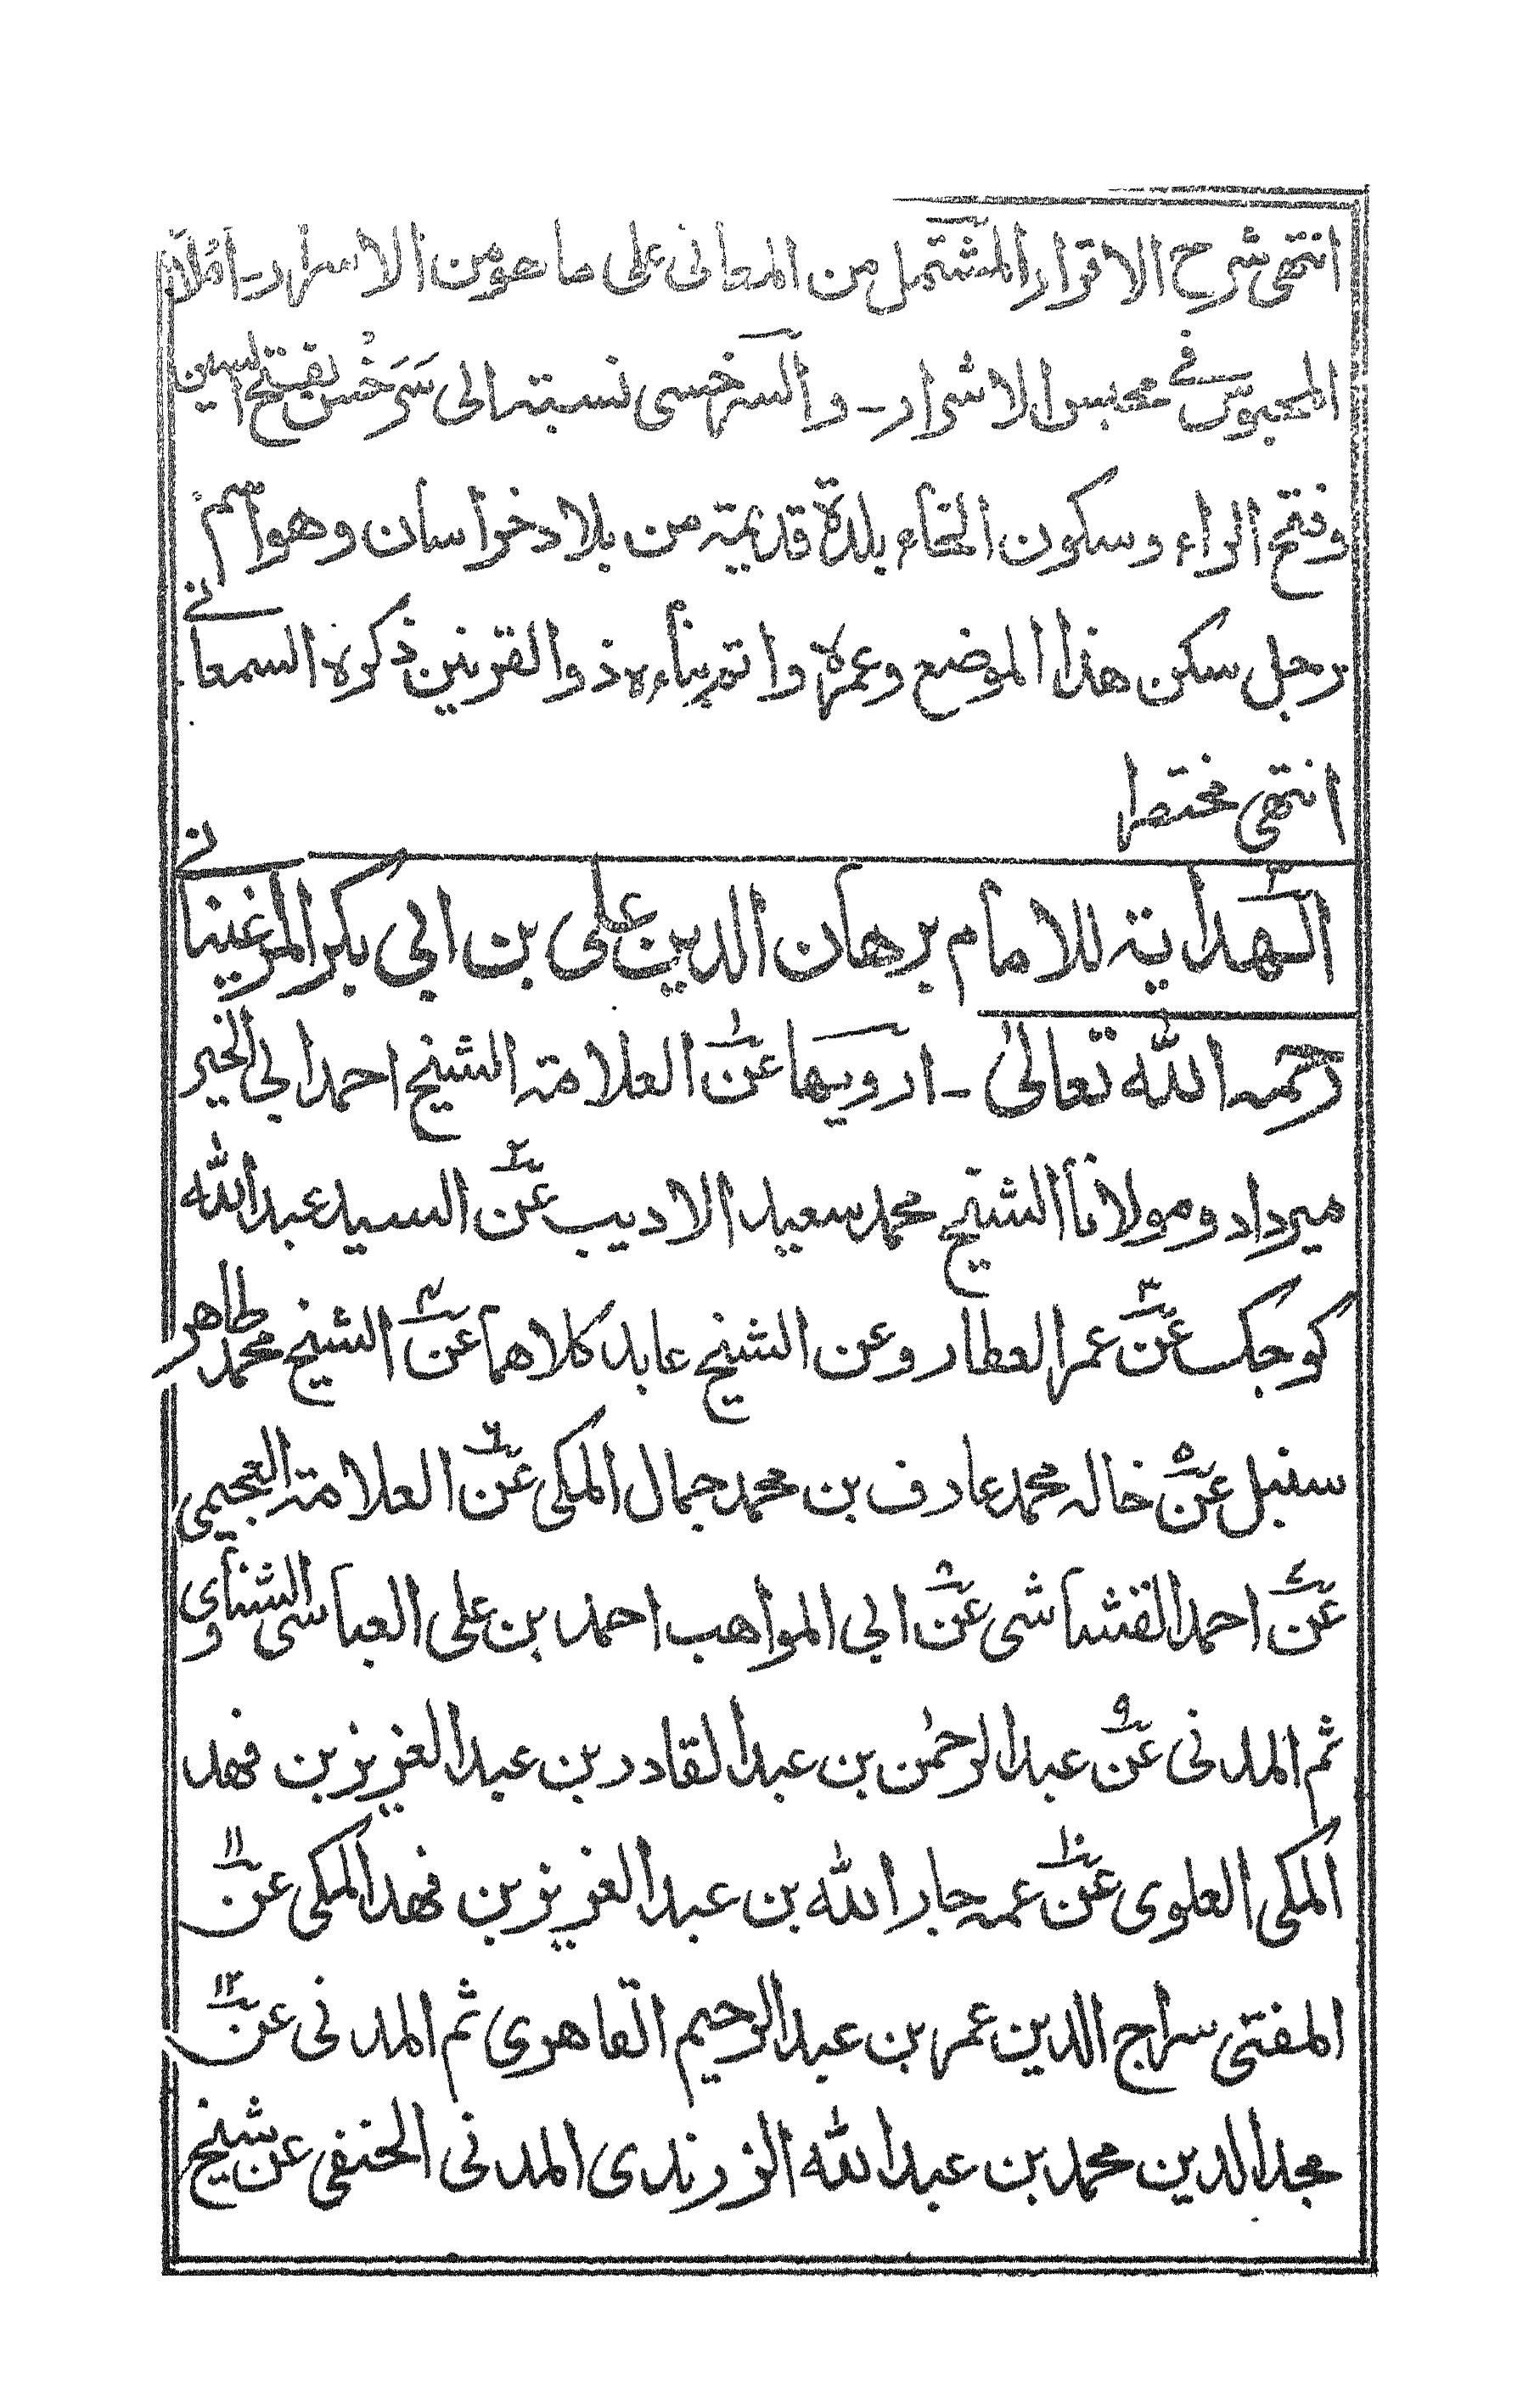 انتهى شرح الاقرار المشتمل من المعانى على ما هو من الاسرار - املاء
المحبوس فى محبس الاشرار - والسرخسى نسبته الى سَرَخْس بفتح السين
وفتح الراء وسكون الخاء بلدة قديمة من بلاد خراسان وهو اسم
رجل سكن هذا الموضع وعمره واتم بناءه ذو القرنين ذكره السمعانى
انتهى مختصرا
الهداية للامام برهان الدين على بن ابى بكر المرغينانى
رحمه الله تعالىٰ - ارويها عن ١ العلامة الشيخ احمد ابى الخير
ميرداد ومولانا الشيخ محمد سعيد الاديب عن ٢ السيد عبد الله
كوجك عن ٣ عمر العطار وعن الشيخ عابد كلاهما عن ٤ الشيخ محمد طاهر
سنبل عن ٥ خاله محمد عارف بن محمد جمال المكى عن ٦ العلامة العجيمى
عن ٧ احمد القشاشى عن ٨ ابى المواهب احمد بن على العباسى الشناوى
ثم المدنى عن ٩ عبد الرحمٰن بن عبد القادر بن عبد العزيز بن فهد
المكى العلوى عن ١٠ عمه جار الله بن عبد العزيز بن فهد المكى عن ١١
المفتى سراج الدين عمر بن عبد الرحيم القاهرى ثم المدنى عن ١٢
مجد الدين محمد بن عبد الله الزرندى المدنى الحنفى عن شيخ